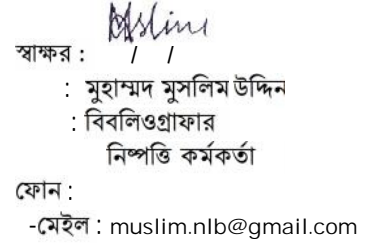 Muslim
স্বাক্ষর :
/ /
: মুহাম্মদ মুসলিম উদ্দিন
: বিবলিওগ্রাফার
নিষ্পত্তি কর্মকর্তা
ফোন :
-মেইল : muslim.nlb@gmail.com